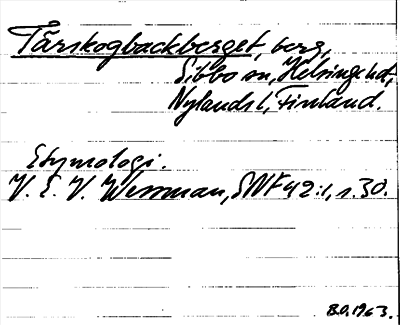 Tårskogbackberget, berg,
Sibbo sn, Helsinge hd,
Nylands l, Finland.
Etymologi.
V. E. V. Wessman, SNF 42:1, s. 30.
B.O. 1963.